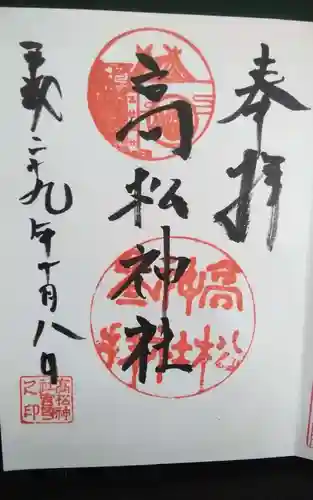 奉拝
高松神社
平成二十九年十月八日
高松神社
高松神社宮司之印